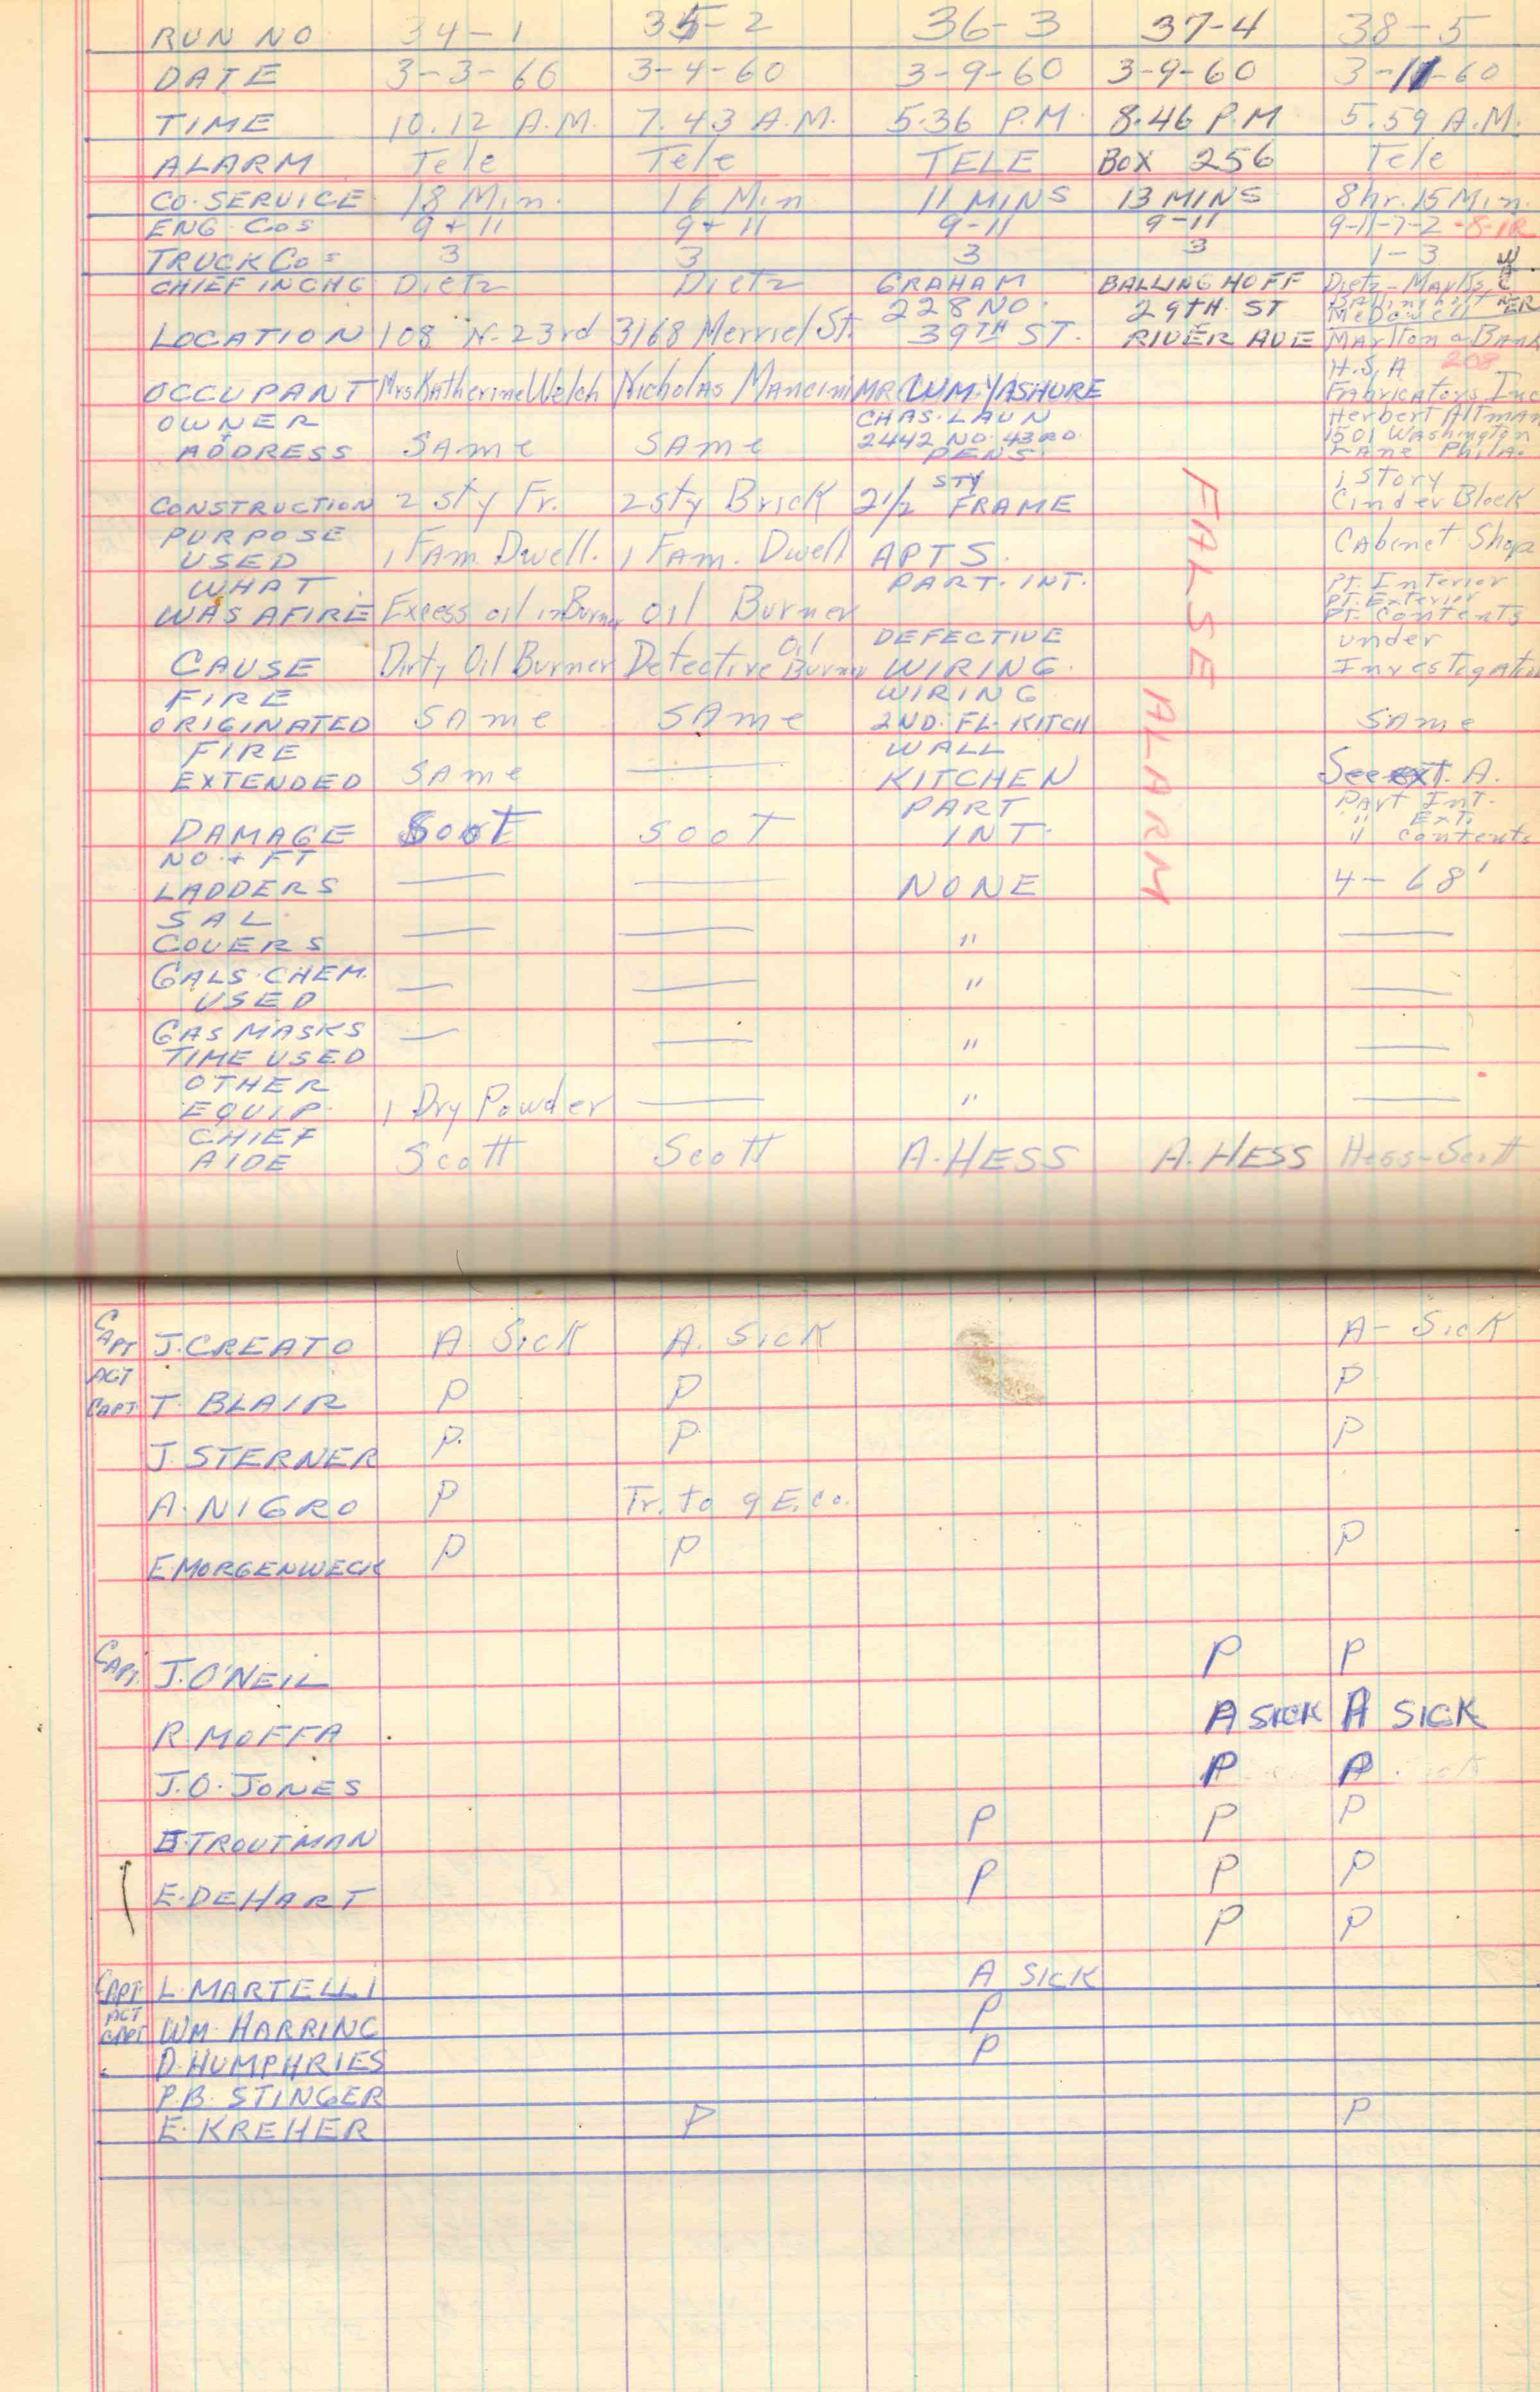 RUN NO 34-1 35-2 36-3 37-4 38-5
DATE 3-3-60 3-4-60 3-9-60 3-9-60 3-11-60
TIME 10.12 A.M. 7.43 A.M. 5.36 P.M. 8.46 P.M 5.59 A.M.
ALARM Tele Tele TELE BOX 256 Tele
CO. SERVICE 18 Min. 16 Min 11 MINS 13 MINS 8hr. 15 Min.
ENG. COS 9+11 9+11 9-11 9-11 9-11-7-2-8-1R
TRUCK COS 3 3 3 3 1-3
CHIEF IN CHG Dietz Dietz GRAHAM BALLINGHOFF Dietz-Marks
228 NO. 29TH. ST
LOCATION 108 N-23rd 3168 Merriel St. 39TH ST. RIVER AVE Marlton & Bank
H.S.A 208
OCCUPANT Mrs Katherine Welch Nicholas Mancini MR WM. YASHURE Fabricators Inc
OWNER CHAS. LAUN Herbert Altman
+ 2442 NO. 43RD. 1501 Washington
ADDRESS SAme SAme PENS. Lane Phila.
STY 1 Story
CONSTRUCTION 2 sty Fr. 2 sty Brick 2 1/2 FRAME Cinder Block
PURPOSE
USED 1 FAm. Dwell. 1 FAm. Dwell APTS. CAbinet Shop
WHAT PART. INT. Pt. Interior
Pt. Exterior
WAS AFIRE Excess oil in Burner oil Burner Pt. Contents
Oil DEFECTIVE under
CAUSE Dirty Oil Burner Detective Burner WIRING. Investigation
FIRE WIRING
ORIGINATED SAme SAme 2ND. FL. KITCH SAme
FIRE WALL
EXTENDED SAme — KITCHEN See ext. A.
PART Part Int.
" Ext.
DAMAGE Soot SOOT INT. " Contents
FALSE ALARM
NO. + FT
LADDERS — — NONE 4 - 68'
SAL.
COVERS — — " —
GALS. CHEM.
USED — — " —
GAS MASKS
TIME USED — — " —
OTHER
EQUIP. 1 Dry Powder — " —
CHIEF
AIDE Scott Scott A. HESS A. HESS Hess-Scott
CAPT J. CREATO A. Sick A. Sick A- Sick
ACT
CAPT. T. BLAIR P P P
J. STERNER P. P. P
A. NIGRO P Tr. to 9 E. Co.
E. MORGENWECK P P P
CAPT. J. O'NEIL P P
R. MOFFA A SICK A SICK
J. O. JONES P P
TROUTMAN P P P
E. DEHART P P P
P P
CAPT. L. MARTELLI A SICK
ACT
CAPT WM. HARRING P
D. HUMPHRIES P
P.B. STINGER
E. KREHER P P